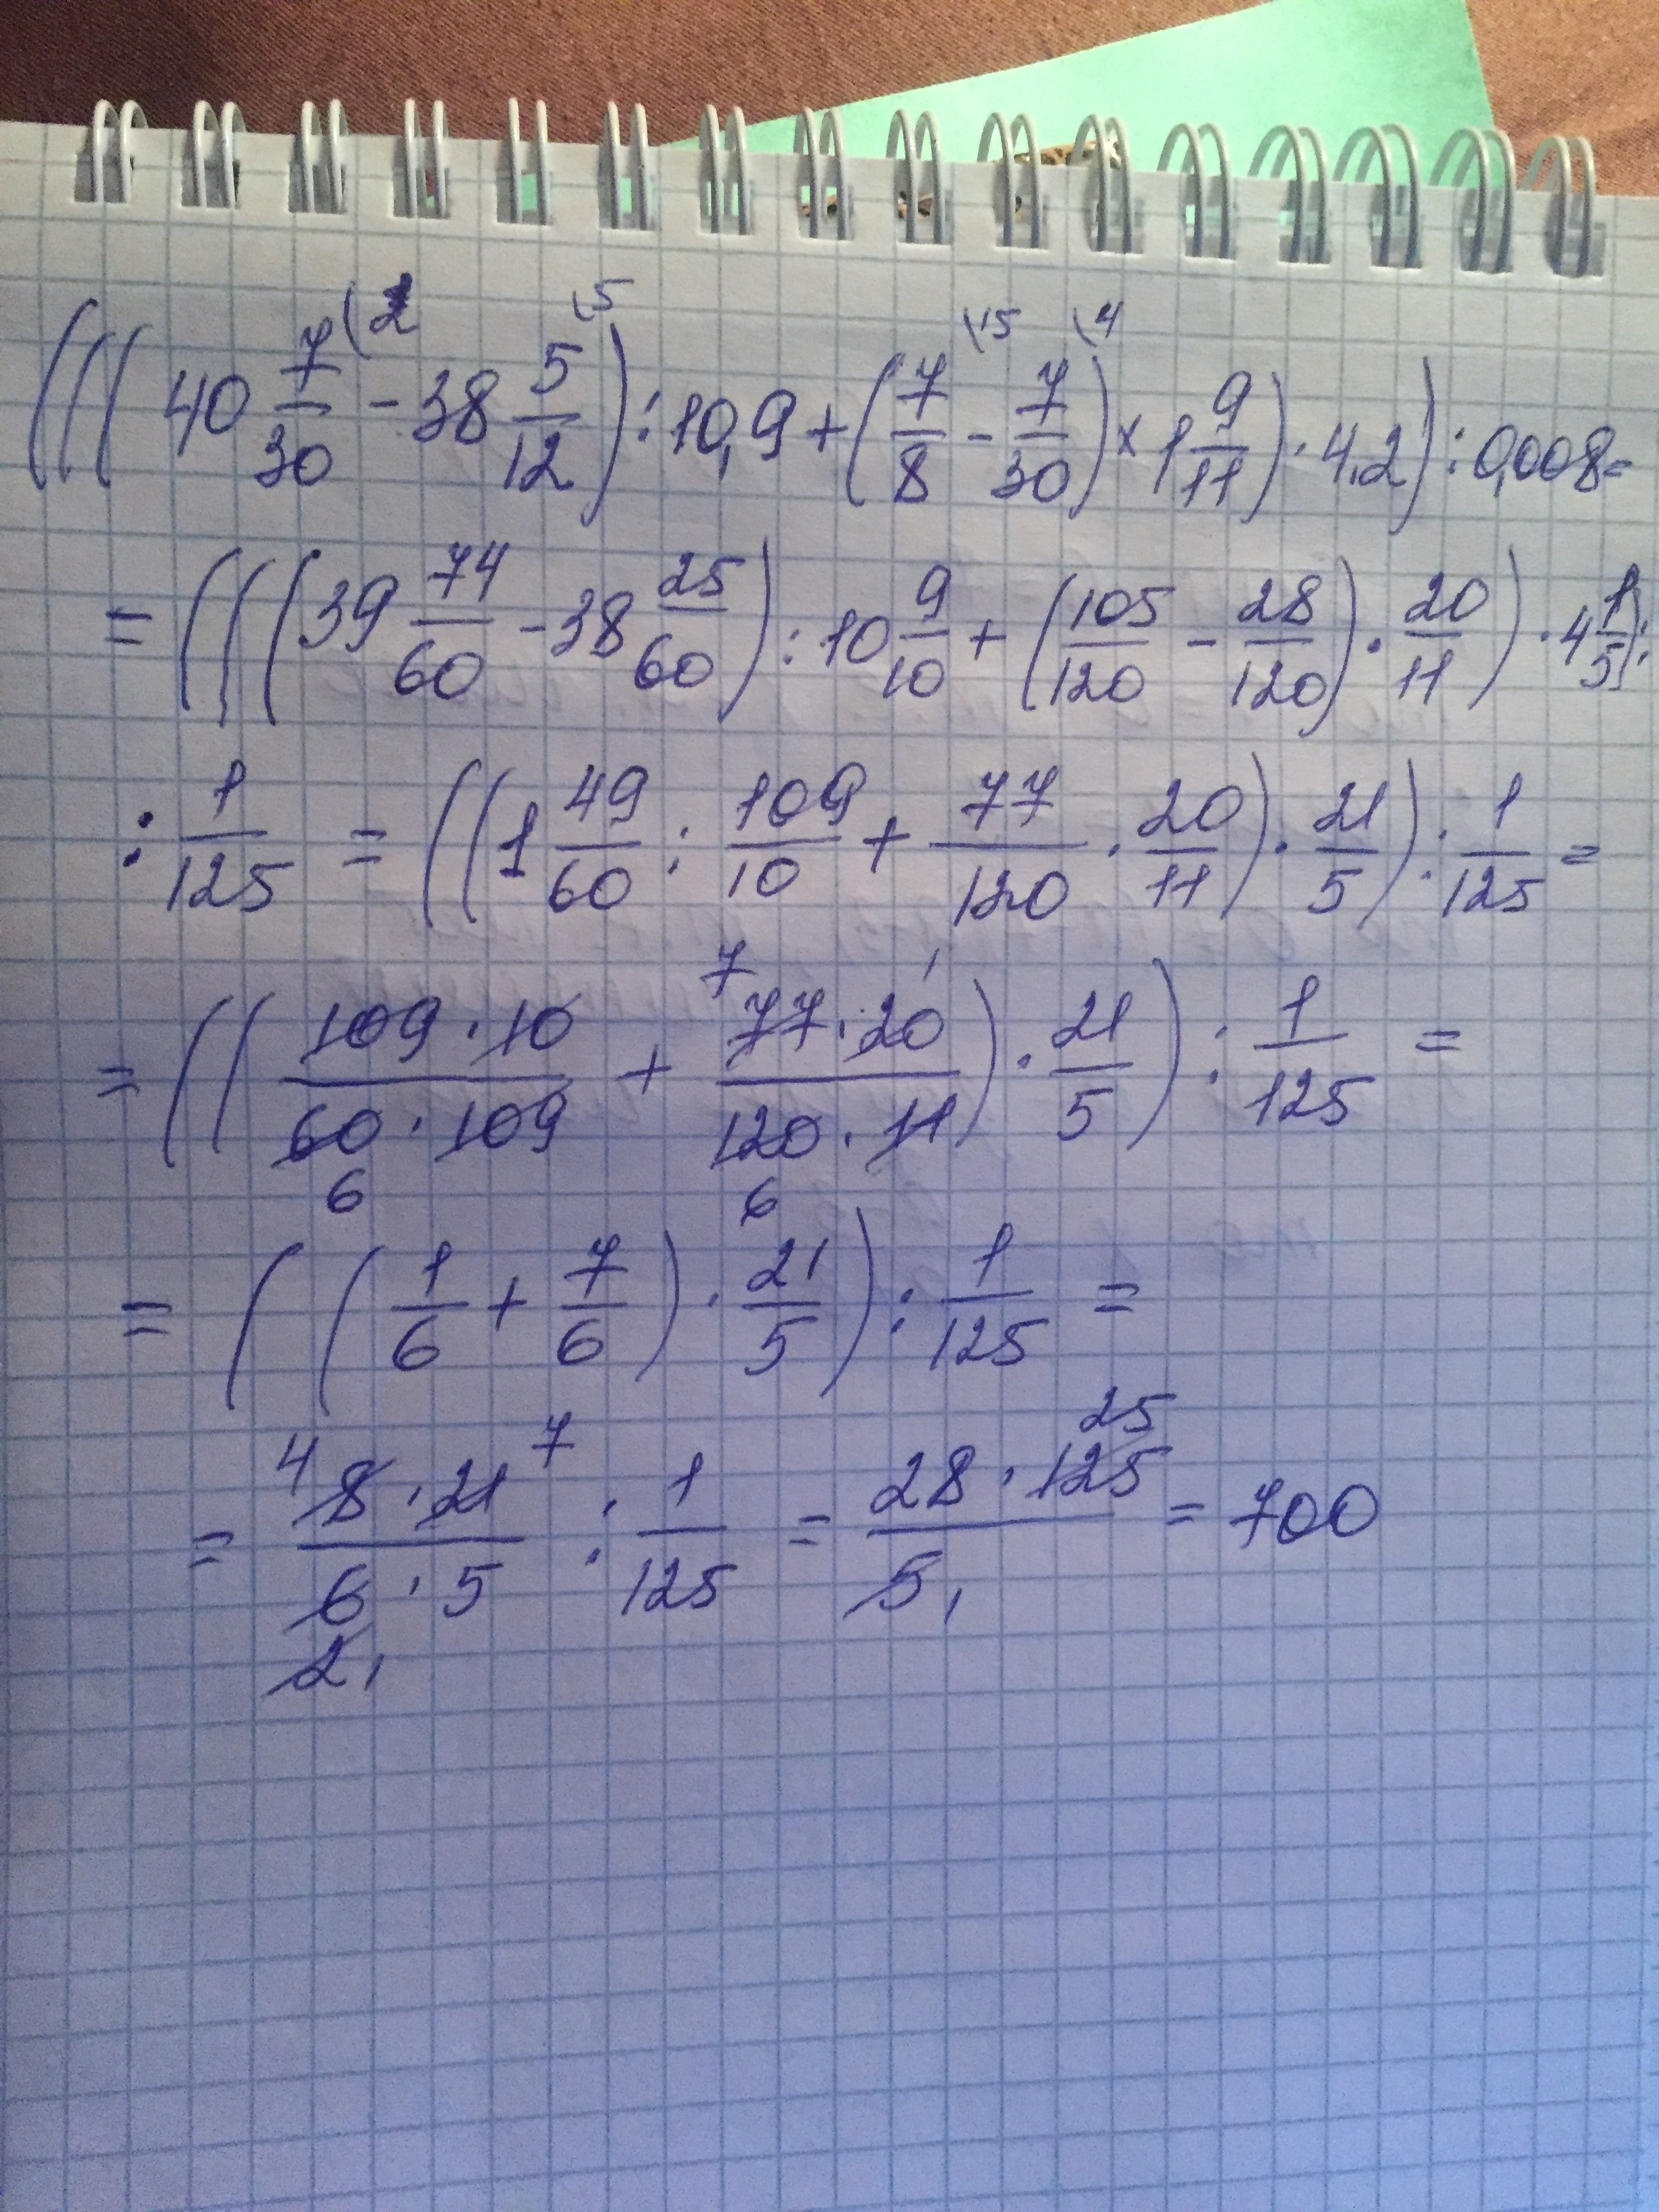 (((40 7/30 \2 - 38 5/12 \5) : 10,9 + (7/8 \15 - 7/30 \4) × 1 9/11) · 4,2) : 0,008 =
= (((39 74/60 - 38 25/60) : 10 9/10 + (105/120 - 28/120) · 20/11) · 4 1/5) :
: 1/125 = ((1 49/60 : 109/10 + 77/120 · 20/11) · 21/5) : 1/125 =
= ((109 · 10 / 60 · 109 6 + 7 77 · 20 1 / 120 · 11 6) · 21/5) : 1/125 =
= ((1/6 + 7/6) · 21/5) : 1/125 =
= 4 8 · 21 7 / 6 · 5 2 1 : 1/125 = 28 · 125 25 / 5 1 = 700